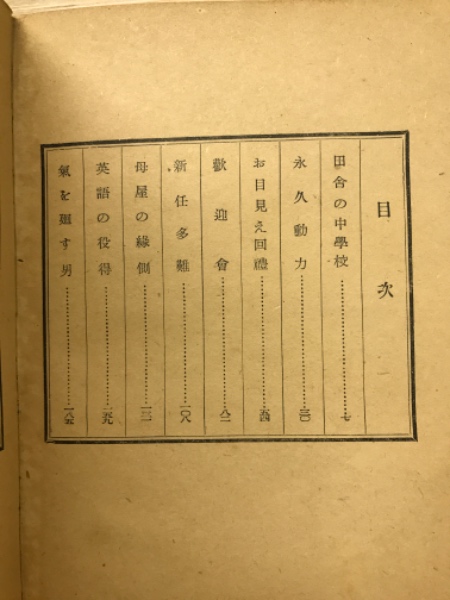 目次
田舍の中學校……七
永久動力……三〇
お目見え回禮……五四
歡迎會……八二
新任多難……一〇八
母屋の緣側……一三一
英語の役得……一五九
氣を廻す男……一八五